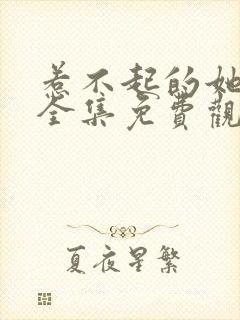 惹不起的她
全集免費觀
夏夜星繁